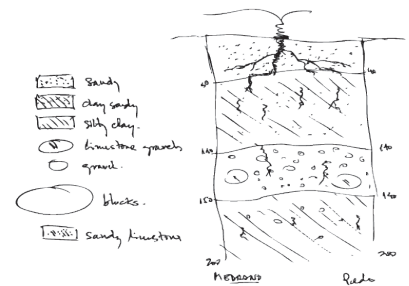 Sandy
clay sandy
silty clay.
limestone gravels
gravel.
blocks.
Sandy limestone
40 40
140
150
200 200
MEDRANO